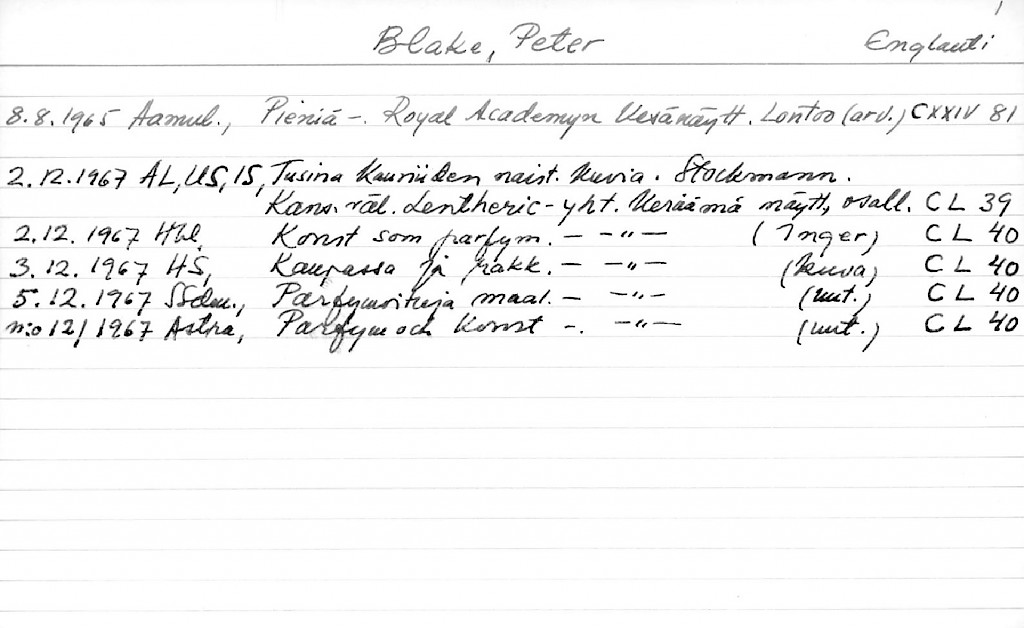 1
Blake, Peter Englanti
8.8.1965 Aamul., Pieniä -. Royal Academyn Kesänäytt. Lontoo (arv.) CXXIV 81
2.12.1967 AL, US, IS, Tusina kauniiden naist. kuvia. Stockmann.
Kans.väl. Lentheric-yht. Keräämä näytt, osall. CL 39
2.12.1967 Hbl, Konst som parfym. — -"- — (Inger) CL 40
3.12.1967 HS, Kaupassa ja — -"- — (kuva) CL 40
5.12.1967 SSdm., maal. — -"- — (uut.) CL 40
n:o 12/1967 Astra, Parfym och Konst -. — -"- — (uut.) CL 40